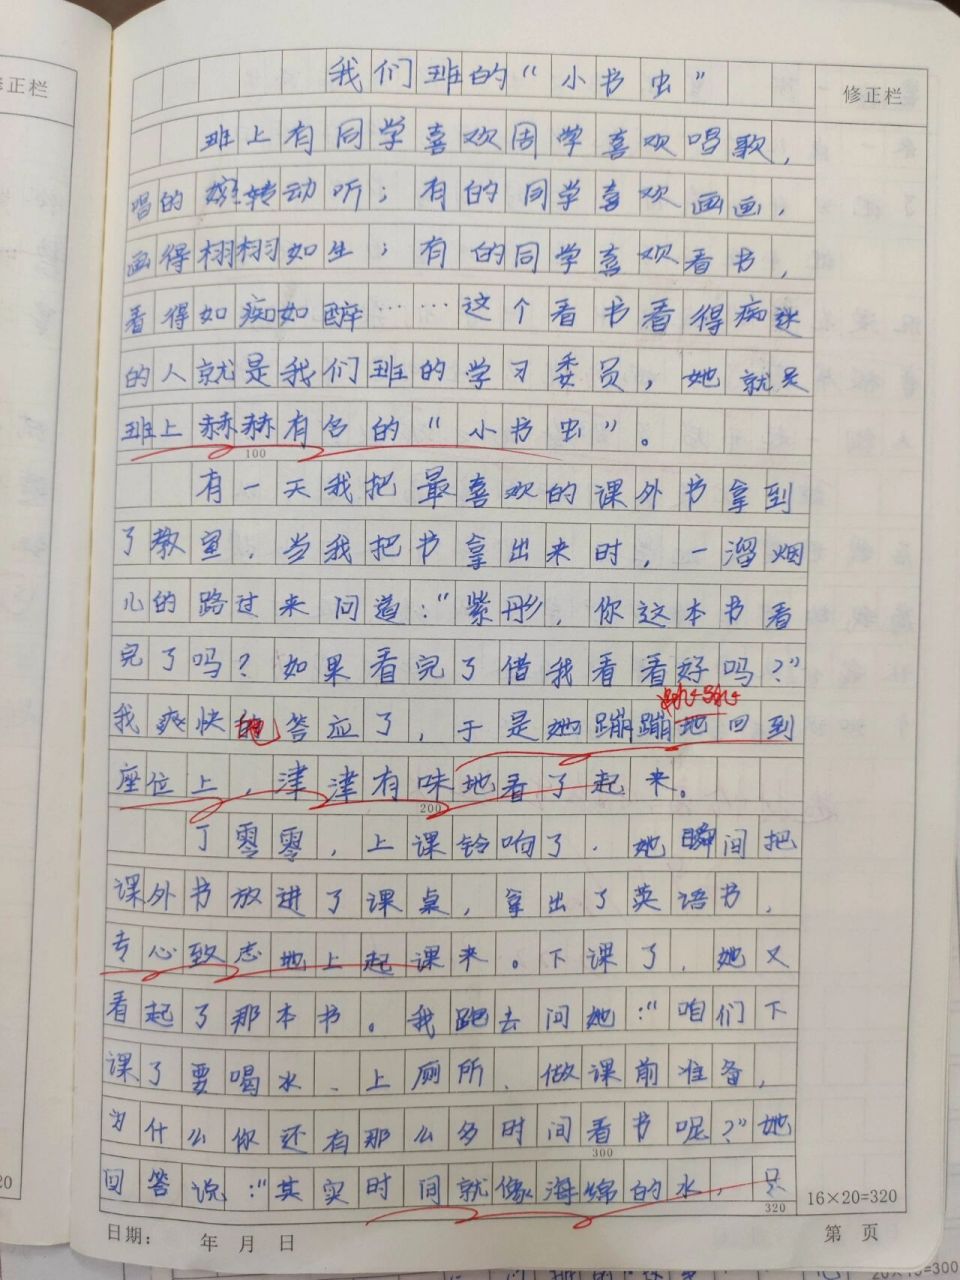 我们班的“小书虫”
修正栏
修正栏
班上有同学喜欢周学喜欢唱歌，
唱的婉转动听；有的同学喜欢画画，
画得栩栩如生；有的同学喜欢看书，
看得如痴如醉……这个看书看得痴迷
的人就是我们班的学习委员，她就是
班上赫赫有名的“小书虫”。
100
有一天我把最喜欢的课外书拿到
了教室，当我把书拿出来时，一溜烟
儿的路过来问道：“紫彤，你这本书看
完了吗？如果看完了借我看看好吗？”
我爽快地答应了，于是她蹦蹦地回到
座位上，津津有味地看了起来。
200
丁零零，上课铃响了．她瞬间把
课外书放进了课桌，拿出了英语书，
专心致志地上起课来。下课了，她又
看起了那本书。我跑去问她：“咱们下
课了要喝水、上厕所、做课前准备，
为什么你还有那么多时间看书呢？”她
300
回答说：“其实时间就像海绵的水，只
320
16×20=320
20
日期：　年 月 日
第 页
20×10=300